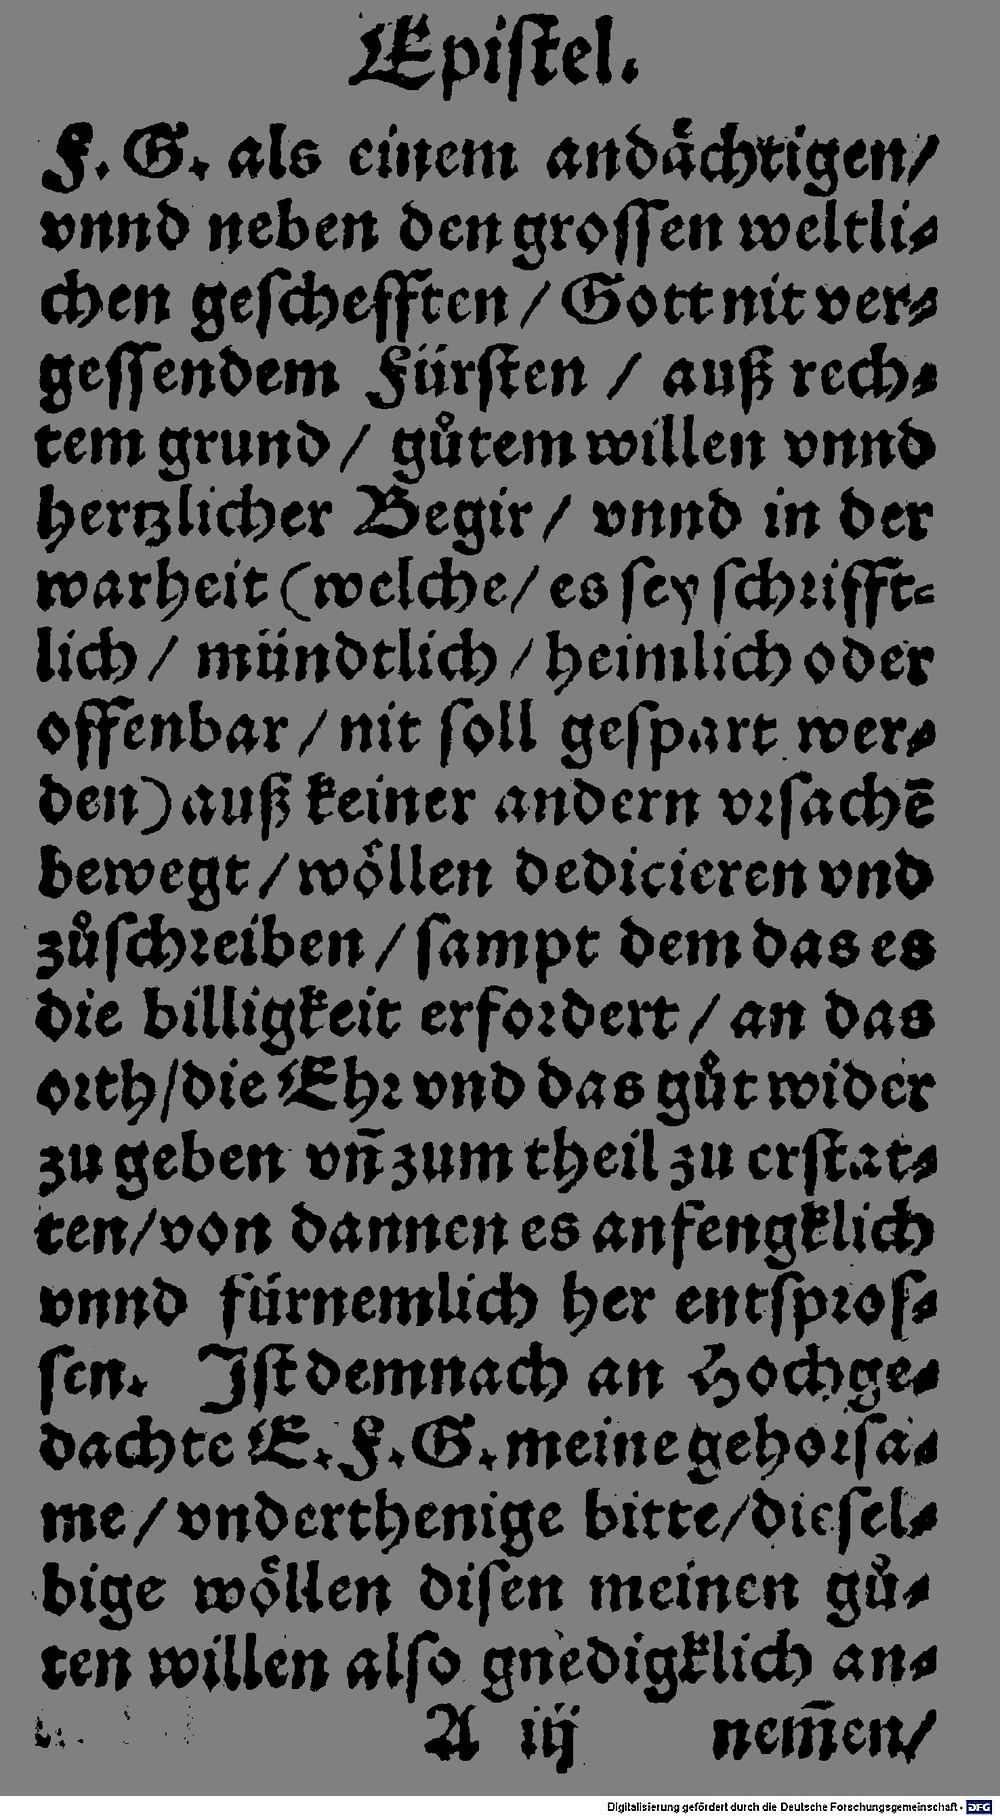 Epiſtel.
F. G. als einem andaͤchtigen/
vnnd neben den groſſen weltli⸗
chen geſchefften / Gott nit ver⸗
geſſendem Fürſten / auß rech⸗
tem grund / gůtem willen vnnd
hertzlicher Begir / vnnd in der
warheit (welche / es ſey ſchꝛifft⸗
lich / mündtlich / heimlich oder
offenbar / nit ſoll geſpart wer⸗
den) auß keiner andern vꝛſachē
bewegt / woͤllen dedicieren vnd
zůſchꝛeiben / ſampt dem das es
die billigkeit erfoꝛdert / an das
oꝛth / die Ehꝛ vnd das gůt wider
zu geben vn̄ zum theil zu erſtat⸗
ten / von dannen es anfengklich
vnnd fürnemlich her entſpꝛoſ⸗
ſen. Iſt demnach an Hochge⸗
dachte E. F. G. meine gehoꝛſa⸗
me / vnderthenige bitte / dieſel⸗
bige woͤllen diſen meinen gů⸗
ten willen alſo gnedigklich an⸗
A iij nem̄en/
Digitalisierung gefördert durch die Deutsche Forschungsgemeinschaft - DFG